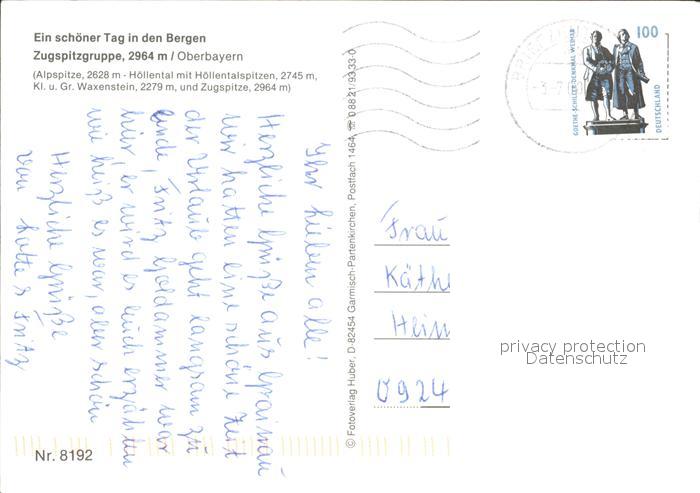 Ein schöner Tag in den Bergen
Zugspitzgruppe, 2964 m / Oberbayern
(Alpspitze, 2628 m - Höllental mit Höllentalspitzen, 2745 m,
Kl. u. Gr. Waxenstein, 2279 m, und Zugspitze, 2964 m)
Ihr lieben alle!
Herzliche Grüße aus Grainau
wir hatten eine schöne Zeit
der Urlaub geht langsam zu
ende, Fritz Goldammer war
hier, er wird es euch erzählen
wie heiß es war, aber schön
Herzliche Grüße
von Lotte & Fritz
Nr. 8192
© Fotoverlag Huber, D-82454 Garmisch-Partenkirchen, Postfach 1464, ☎ 0 88 21/93 33-0
100
GOETHE-SCHILLER-DENKMAL WEIMAR
DEUTSCHLAND
Frau
Käthe
Hein
0924
privacy protection
Datenschutz